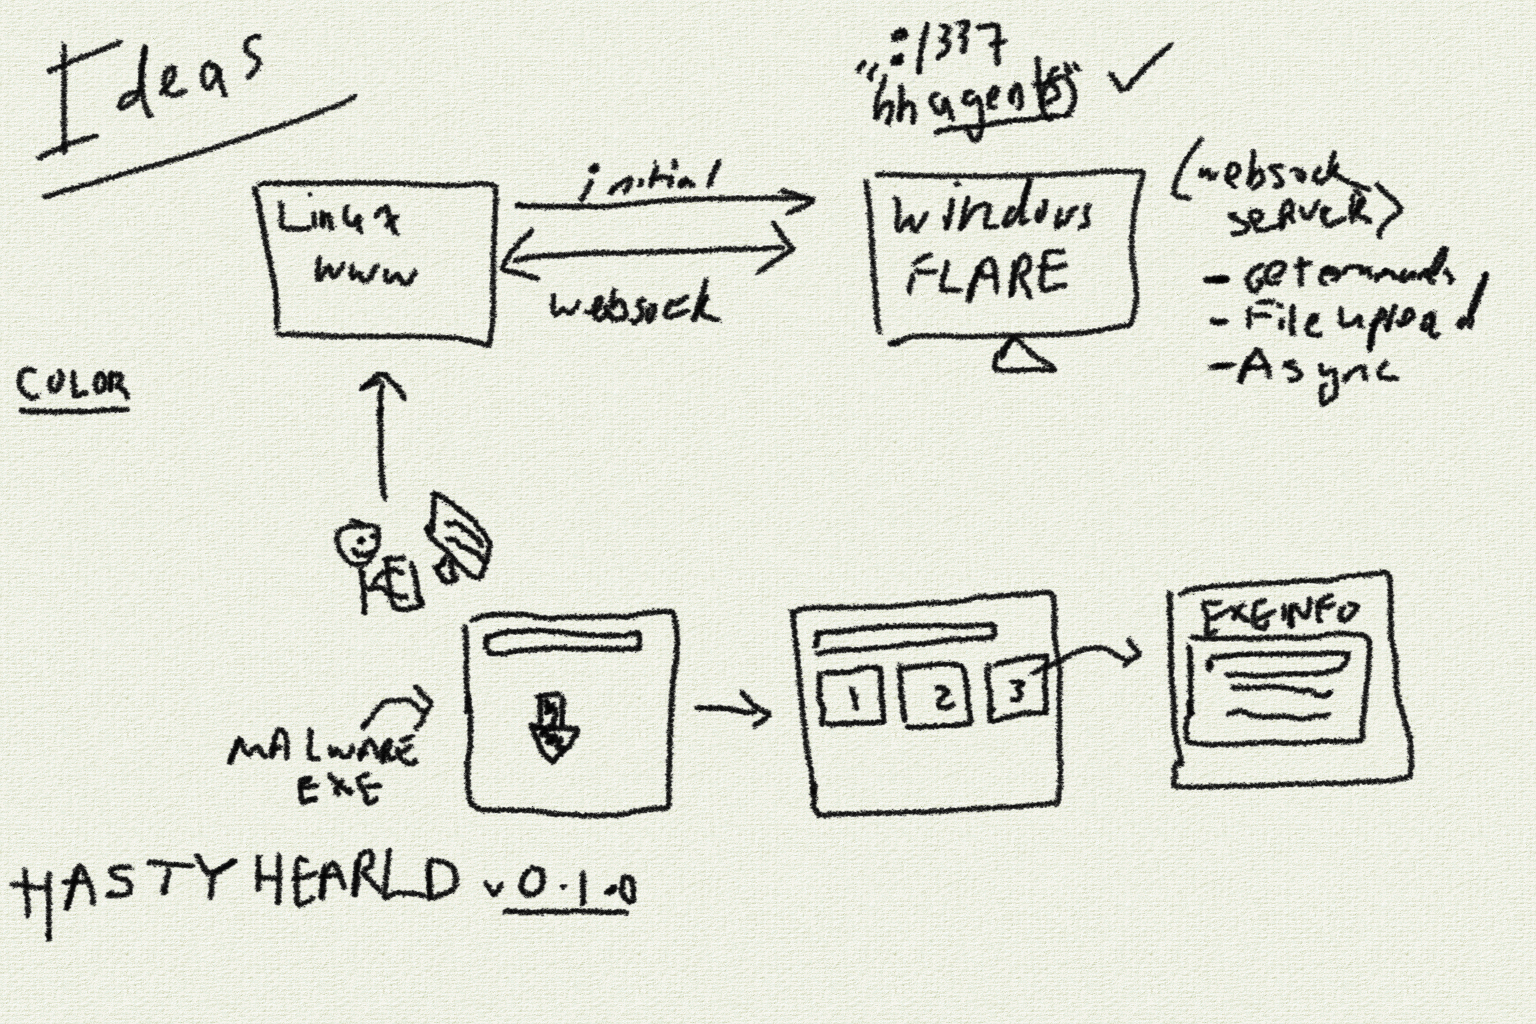 Ideas
:1337
"hhagent(s)"
initial
Linux
www
websock
Windows
FLARE
(websock
SERVER)
- Get commands
- File upload
- Async
COLOR
MALWARE
EXE
1
2
3
EXEINFO
HASTY HEARLD v0.1.0